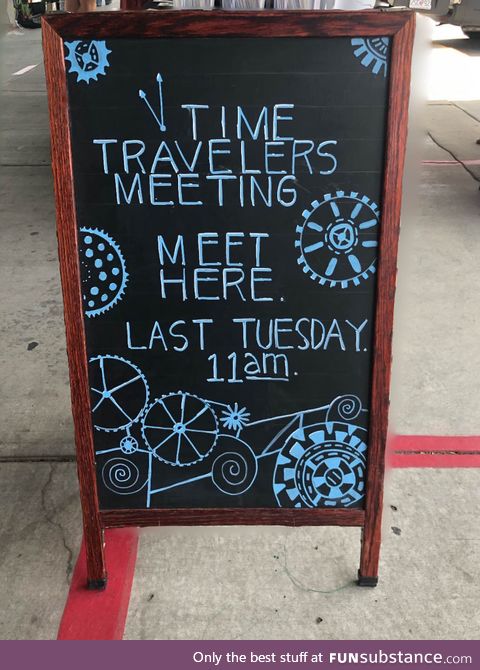 TIME
TRAVELERS
MEETING
MEET
HERE.
LAST TUESDAY.
11am.
Only the best stuff at FUNsubstance.com